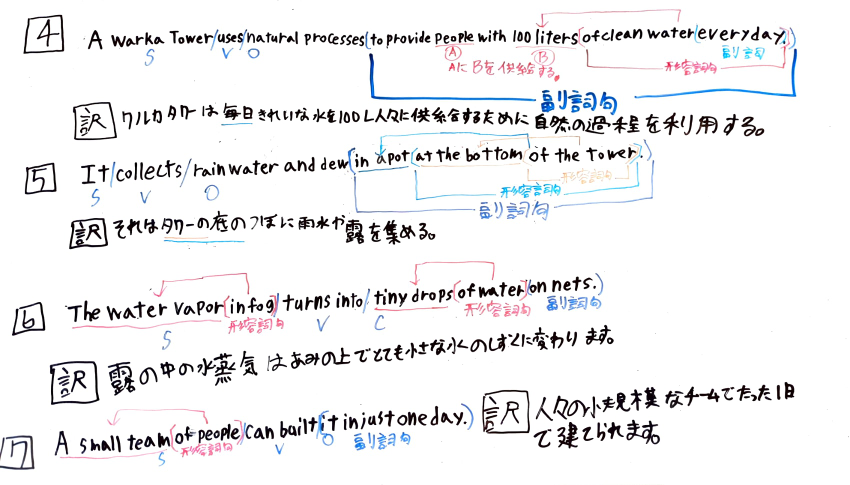 4 A Warka Tower/uses/natural processes(to provide people with 100 liters(of clean water)everyday.)
S V O Ⓐ Ⓑ 形容詞句 副詞
AにBを供給する。
副詞句
訳 ワルカタワーは毎日きれいな水を100L人々に供給するために自然の過程を利用する。
5 It/collects/rainwater and dew(in a pot(at the bottom(of the tower.)))
S V O 形容詞句 形容詞句
副詞句
訳 それはタワーの底のつぼに雨水や露を集める。
6 The water vapor(in fog)/turns into/tiny drops(of water)(on nets.)
S 形容詞句 V C 形容詞句 副詞句
訳 露の中の水蒸気はあみの上でとても小さな水のしずくに変わります。
7 A small team(of people)/can built/it(in just one day.)
S 形容詞句 V O 副詞句
訳 人々の小規模なチームでたった1日
で建てられます。